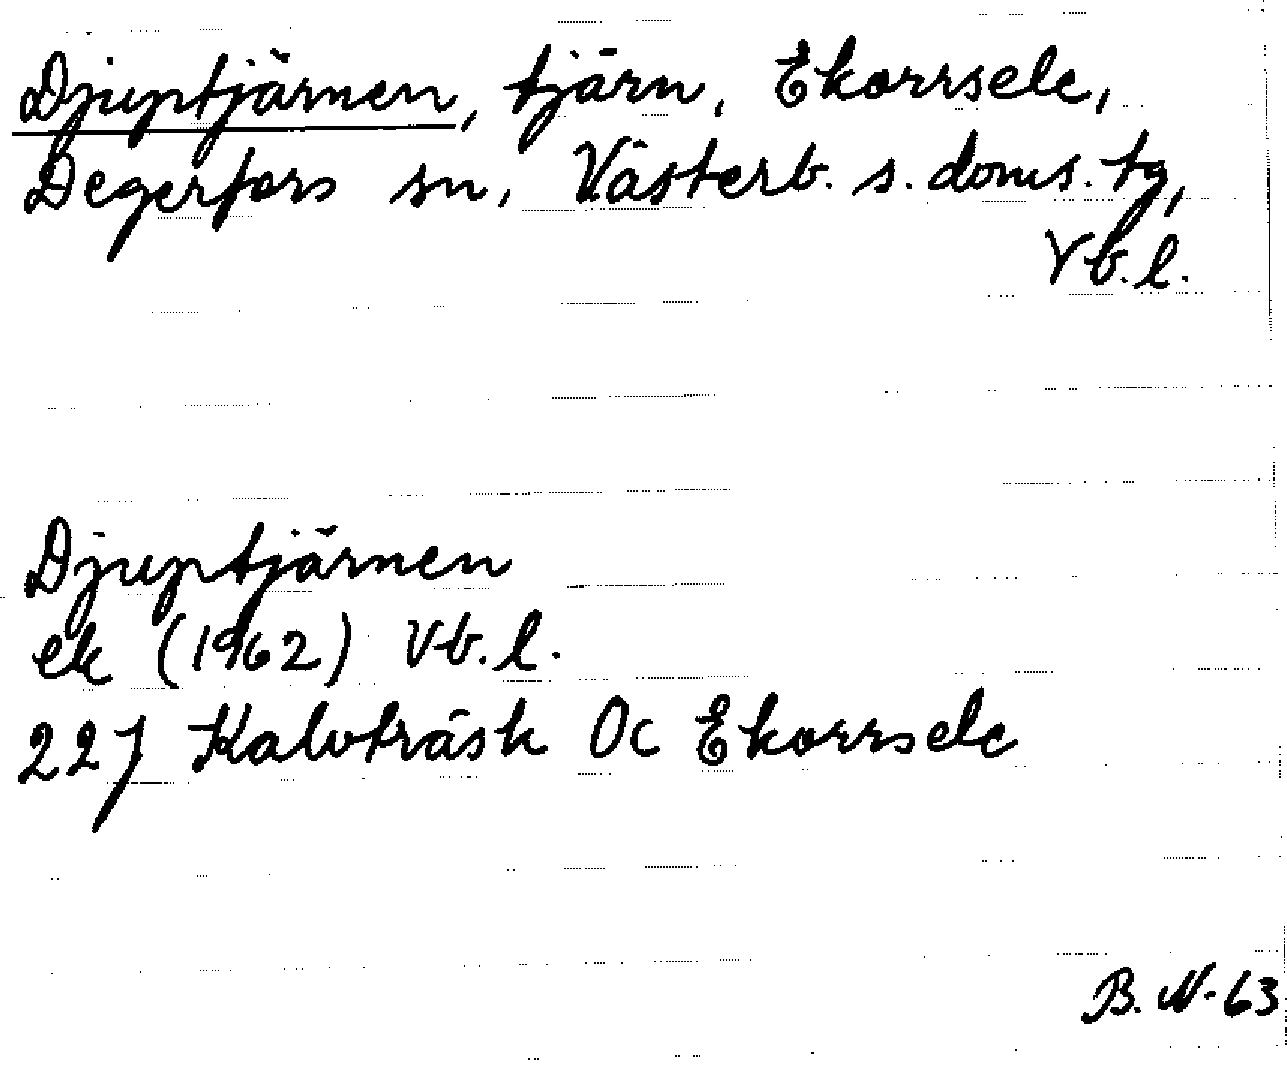 Djuptjärnen, tjärn, Ekorrsele,
Degerfors sn, Västerb. s. doms. tg,
Vb. l.
Djuptjärnen
ek (1962) Vb. l.
22J Kalvträsk Oc Ekorrsele
B. N-63